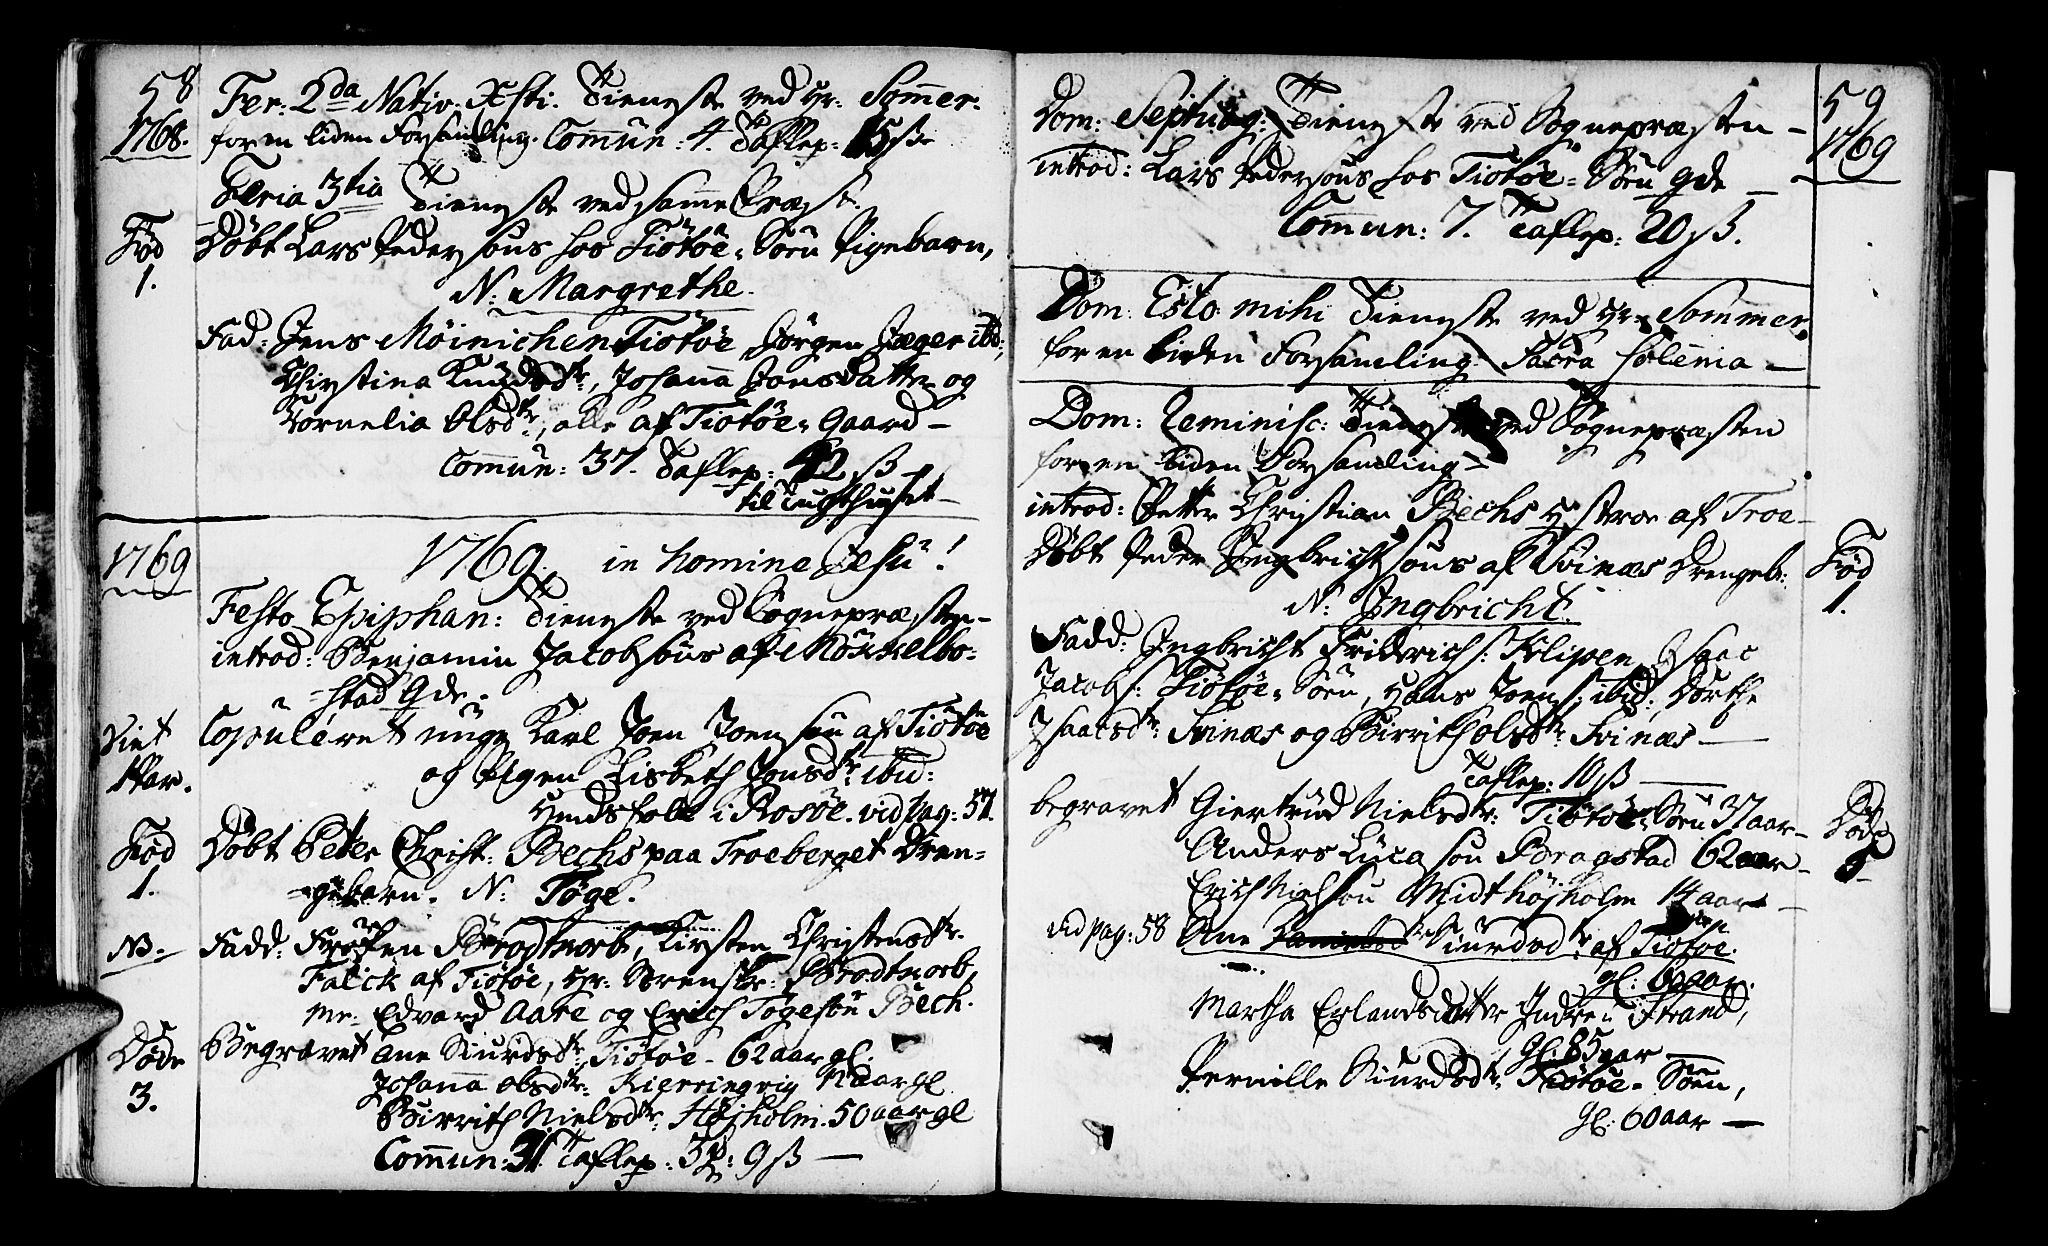 58
1768.
Fer: 2da Nativ. Xsti. Tieneste ved Hr: Sommer.
for en liden Forsamling. Comun: 4. Taflep: 15 ß.
Feria 3tia Tieneste ved samme Præst.
Fød
1.
Døbt Lars Pedersøns hos Tiøtøe-Søen Pigebarn,
N: Margrethe.
Fad: Jens Møinichen Tiøtøe, Jørgen Jæger ibd:,
Christina Knudsdtr, Johanna Jonsdatter og
Cornelia Olsdtr, alle af Tiøtøe-Gaard
Comun: 37. Taflep: 42 ß
til Tugthuset
1769
1769. in Nomine Jesu!
Festo Epiphan: Tieneste ved Sognepræsten
introd: Benjamin Jacobsøns af Møkkelbo-
stad Qde.
Viet
1 Par.
Copuleret unge Karl Joen Joensøn af Tiøtøe
og Pigen Lisbeth Jonsdtr ibid:
vid pag: 57.
Fød
1.
Døbt Peter Christ: Bechs paa Troeberget Dren-
gebarn. N: Tøge.
NB.
Fadd: Frøken Brodtkorb, Kirsten Christensdtr.
Falck af Tiøtøe, Hr: Brodtkorb,
Mr. Edvard Aare og Erich Tøgesøn Bech.
Døde
3.
Begravet Ane Siurdsdtr Tiøtøe - 62 aar gl.
Johanna Olsdtr: Kierringvig aar gl
Birrith Nielsdtr: Højholm. 50 aar gl
Comun: 31. Taflep: 3 9 ß
59
1769
Dom: Septuag: Tieneste ved Sognepræsten
introd: Lars Pedersøns hos Tiøtøe-Søen Qde
Comun: 7. Taflep: 20 ß.
Dom: Esto mihi Tieneste ved Hr: Sommer.
for en liden Forsamling. Sacra solenia
Dom: Reminisc: Tieneste ved Sognepræsten
for en liden Forsamling
introd: Petter Christian Bechs Hustroe af Troe
Fød
1.
Døbt Peder Ingbrichtsøns af Svinæs Drengeb:
N: Ingbricht.
Fadd: Ingbricht Friderichs: Klipen, Isaac
Jacobs: Tiøtøe-Søen, Hans Joens: ibid:, Dorthe
Isaacsdtr: Svinæs og Birrith Olsdtr: Svinæs
Taflep: 10 ß
Døde
begravet Giertrud Nielsdtr: Tiøtøe-Søen 37 aar
Anders Lucasøn Bragstad 62 aar
Erich Nielsøn Midthøjholm 14 aar
vid pag: 58 Ane Siurdsdtr af Tiøtøe.
gl: 62 aar.
Martha Erlandsdatter Indre Strand,
gl: 85 aar
Pernille Siurdsdtr Tiøtøe-Søen,
gl: 60 aar